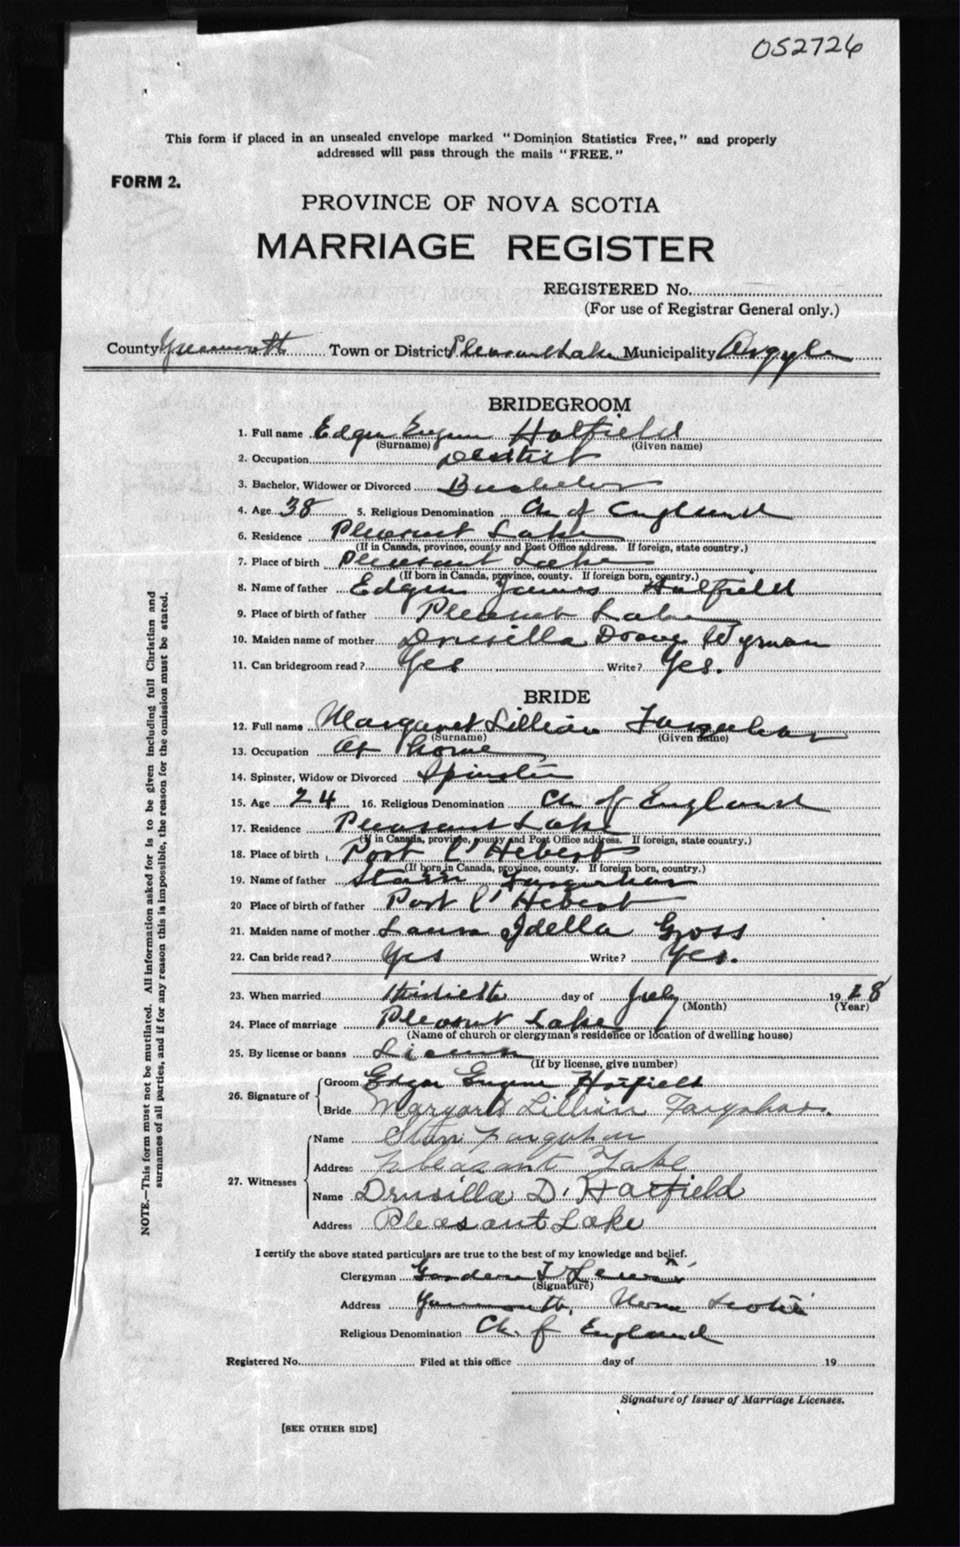 052726
This form if placed in an unsealed envelope marked "Dominion Statistics Free," and properly
addressed will pass through the mails "FREE."
FORM 2.
PROVINCE OF NOVA SCOTIA
MARRIAGE REGISTER
REGISTERED No.
(For use of Registrar General only.)
County Yarmouth Town or District Pleasant Lake Municipality Argyle
BRIDEGROOM
1. Full name Edgar Eugene Hatfield
(Surname) (Given name)
2. Occupation Dentist
3. Bachelor, Widower or Divorced Bachelor
4. Age 38 5. Religious Denomination Ch of England
6. Residence Pleasant Lake
(If in Canada, province, county and Post Office address. If foreign, state country.)
7. Place of birth Pleasant Lake
(If born in Canada, province, county. If foreign born, country.)
8. Name of father Edgar James Hatfield
9. Place of birth of father Pleasant Lake
10. Maiden name of mother Drusilla Doane Wyman
11. Can bridegroom read? Yes Write? Yes.
BRIDE
12. Full name Margaret Lillian Farquhar
(Surname) (Given name)
13. Occupation At home
14. Spinster, Widow or Divorced Spinster
15. Age 24 16. Religious Denomination Ch of England
17. Residence Pleasant Lake
(If in Canada, province, county and Post Office address. If foreign, state country.)
18. Place of birth Port l'Hebert
(If born in Canada, province, county. If foreign born, country.)
19. Name of father Farquhar
20 Place of birth of father Port l'Hebert
21. Maiden name of mother Laura Idella Gross
22. Can bride read? Yes Write? Yes.
23. When married thirtieth day of July 1928
(Month) (Year)
24. Place of marriage Pleasant Lake
(Name of church or clergyman's residence or location of dwelling house)
25. By license or banns License
(If by license, give number)
26. Signature of
Groom Edgar Eugene Hatfield
Bride Margaret Lillian Farquhar.
27. Witnesses
Name Stan Farquhar
Address Pleasant Lake
Name Drusilla D. Hatfield
Address Pleasant Lake
I certify the above stated particulars are true to the best of my knowledge and belief.
Clergyman Lewis
(Signature)
Address Yarmouth, Nova Scotia
Religious Denomination Ch. of England
Registered No. Filed at this office day of 19
Signature of Issuer of Marriage Licenses.
[SEE OTHER SIDE]
NOTE.—This form must not be mutilated. All information asked for is to be given including full Christian and
surnames of all parties, and if for any reason this is impossible, the reason for the omission must be stated.